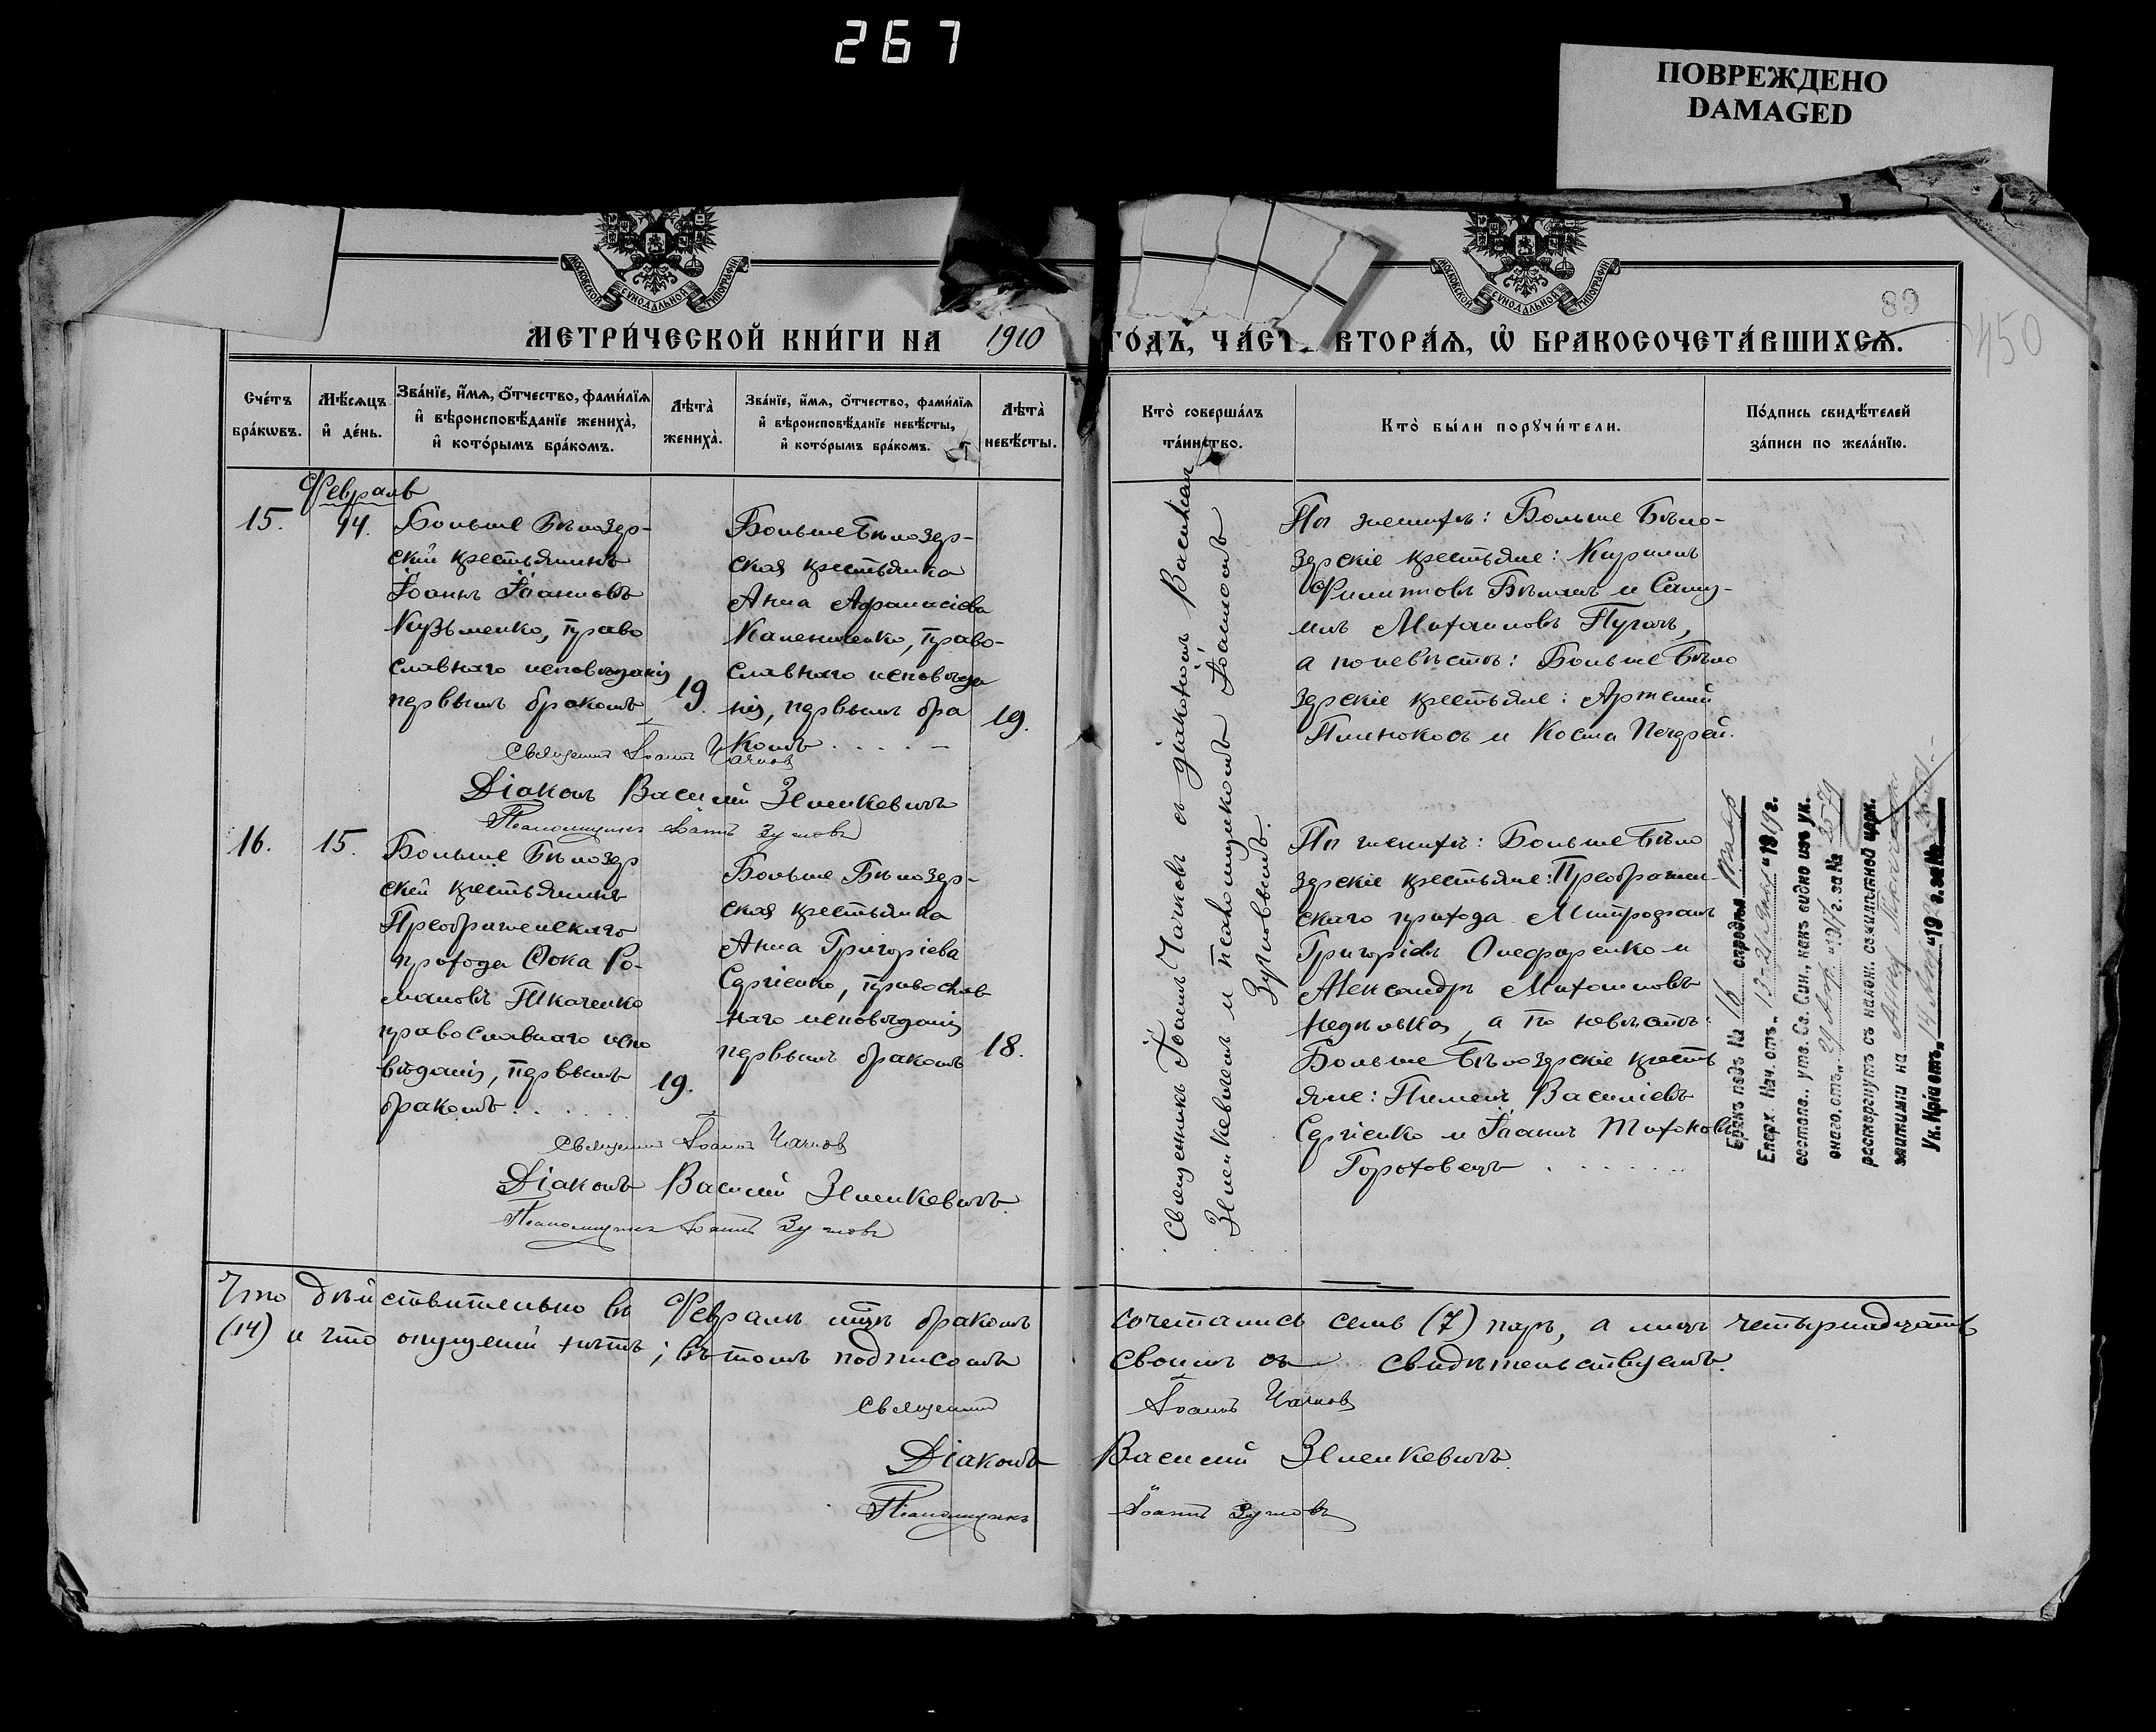 267
ПОВРЕЖДЕНО
DAMAGED
МОСКОВСКОЙ СѴНОДАЛЬНОЙ ТИПОГРАФІИ
МОСКОВСКОЙ СѴНОДАЛЬНОЙ ТИПОГРАФІИ
89
450
МЕТРИ́ЧЕСКОЙ КНИ́ГИ НА 1910 ГО́ДЪ, ЧА́СТ ВТОРА́Ѧ, Ѡ҆ БРАКОСОЧЕТА́ВШИХСѦ.
Сче́тъ
бра́кѡвъ.
Мѣ́сѧцъ
и҆ де́нь.
Зва́нїе, и҆́мѧ, ѻ҆́тчество, фами́лїѧ
и҆ вѣроисповѣ́данїе жениха̀,
и҆ кото́рымъ бра́комъ.
Лѣта̀
жениха̀.
Зва́нїе, и҆́мѧ, ѻ҆́тчество, фами́лїѧ
и҆ вѣроисповѣ́данїе невѣ́сты,
и҆ кото́рымъ бра́комъ.
Лѣта̀
невѣ́сты.
Кто̀ соверша́лъ
та́инство.
Кто̀ бы́ли порꙋчи́тели.
По́дпись свидѣ́телей
за́писи по жела́нїю.
Февраль
15.
14.
Больше Бѣлозер-
скій крестьянинъ
Іоаннъ Іоанновъ
Кузьменко, право
славнаго исповѣданія
первымъ бракомъ
19.
Больше Бѣлозер-
ская крестьянка
Анна Афанасіева
Калениченко, право-
славнаго исповѣда
нія, первымъ бра
комъ
19.
Священникъ Іоаннъ Чачковъ съ діакономъ Василіемъ
Зеленкевичемъ и псаломщикомъ Іоанномъ
Зуловымъ.
По женихѣ: Больше Бѣло-
зерскіе крестьяне: Кириллъ
Филипповъ Бѣлашъ и Саму-
илъ Михаиловъ Пугачъ,
а по невѣстѣ: Больше Бѣло
зерскіе крестьяне: Артемий
Плинокосъ и Косма
Священникъ Іоаннъ Чачковъ
Діаконъ Василій Зеленкевичъ
Псаломщикъ Іоаннъ Зуловъ
16.
15.
Больше Бѣлозер
скій крестьянинъ
Преображенскаго
прихода Фока Ро-
мановъ Ткаченко
православнаго испо
вѣданія, первымъ
бракомъ
19.
Больше Бѣлозер-
ская крестьянка
Анна Григоріева
Сергіенко, православ
наго исповѣданія
первымъ бракомъ
18.
По женихѣ: Больше Бѣло
зерскіе крестьяне: Преображен-
скаго прихода Митрофанъ
Григоріевъ Онефуренко и
Александръ Михаиловъ
Недилька, а по невѣстѣ:
Больше Бѣлозерскіе кресть
яне: Пименъ Василіевъ
Сергіенко и Іоаннъ Тихоновъ
Гороховецъ
Бракъ подъ № 16 опредѣл.
Епарх. Нач. отъ „13-21 19 г.
состояв., утв. Св. Син., какъ видно изъ ук.
онаго, отъ „ 191 г. за № 3579
расторгнутъ съ налож. семилѣтней церк.
эпитиміи на Анну Ткаченкову
Ук. Кріистъ „14 19 г. за №
Священникъ Іоаннъ Чачковъ
Діаконъ Василій Зеленкевичъ.
Псаломщикъ Іоаннъ Зуловъ
Что дѣйствительно въ Февралѣ мцѣ бракомъ сочетались семь (7) паръ, а лицъ четырнадцать
(14) и что опущеній нѣтъ; въ томъ подписомъ своимъ свидѣтельствуемъ.
Священникъ Іоаннъ Чачковъ
Діаконъ Василій Зеленкевичъ.
Псаломщикъ Іоаннъ Зуловъ